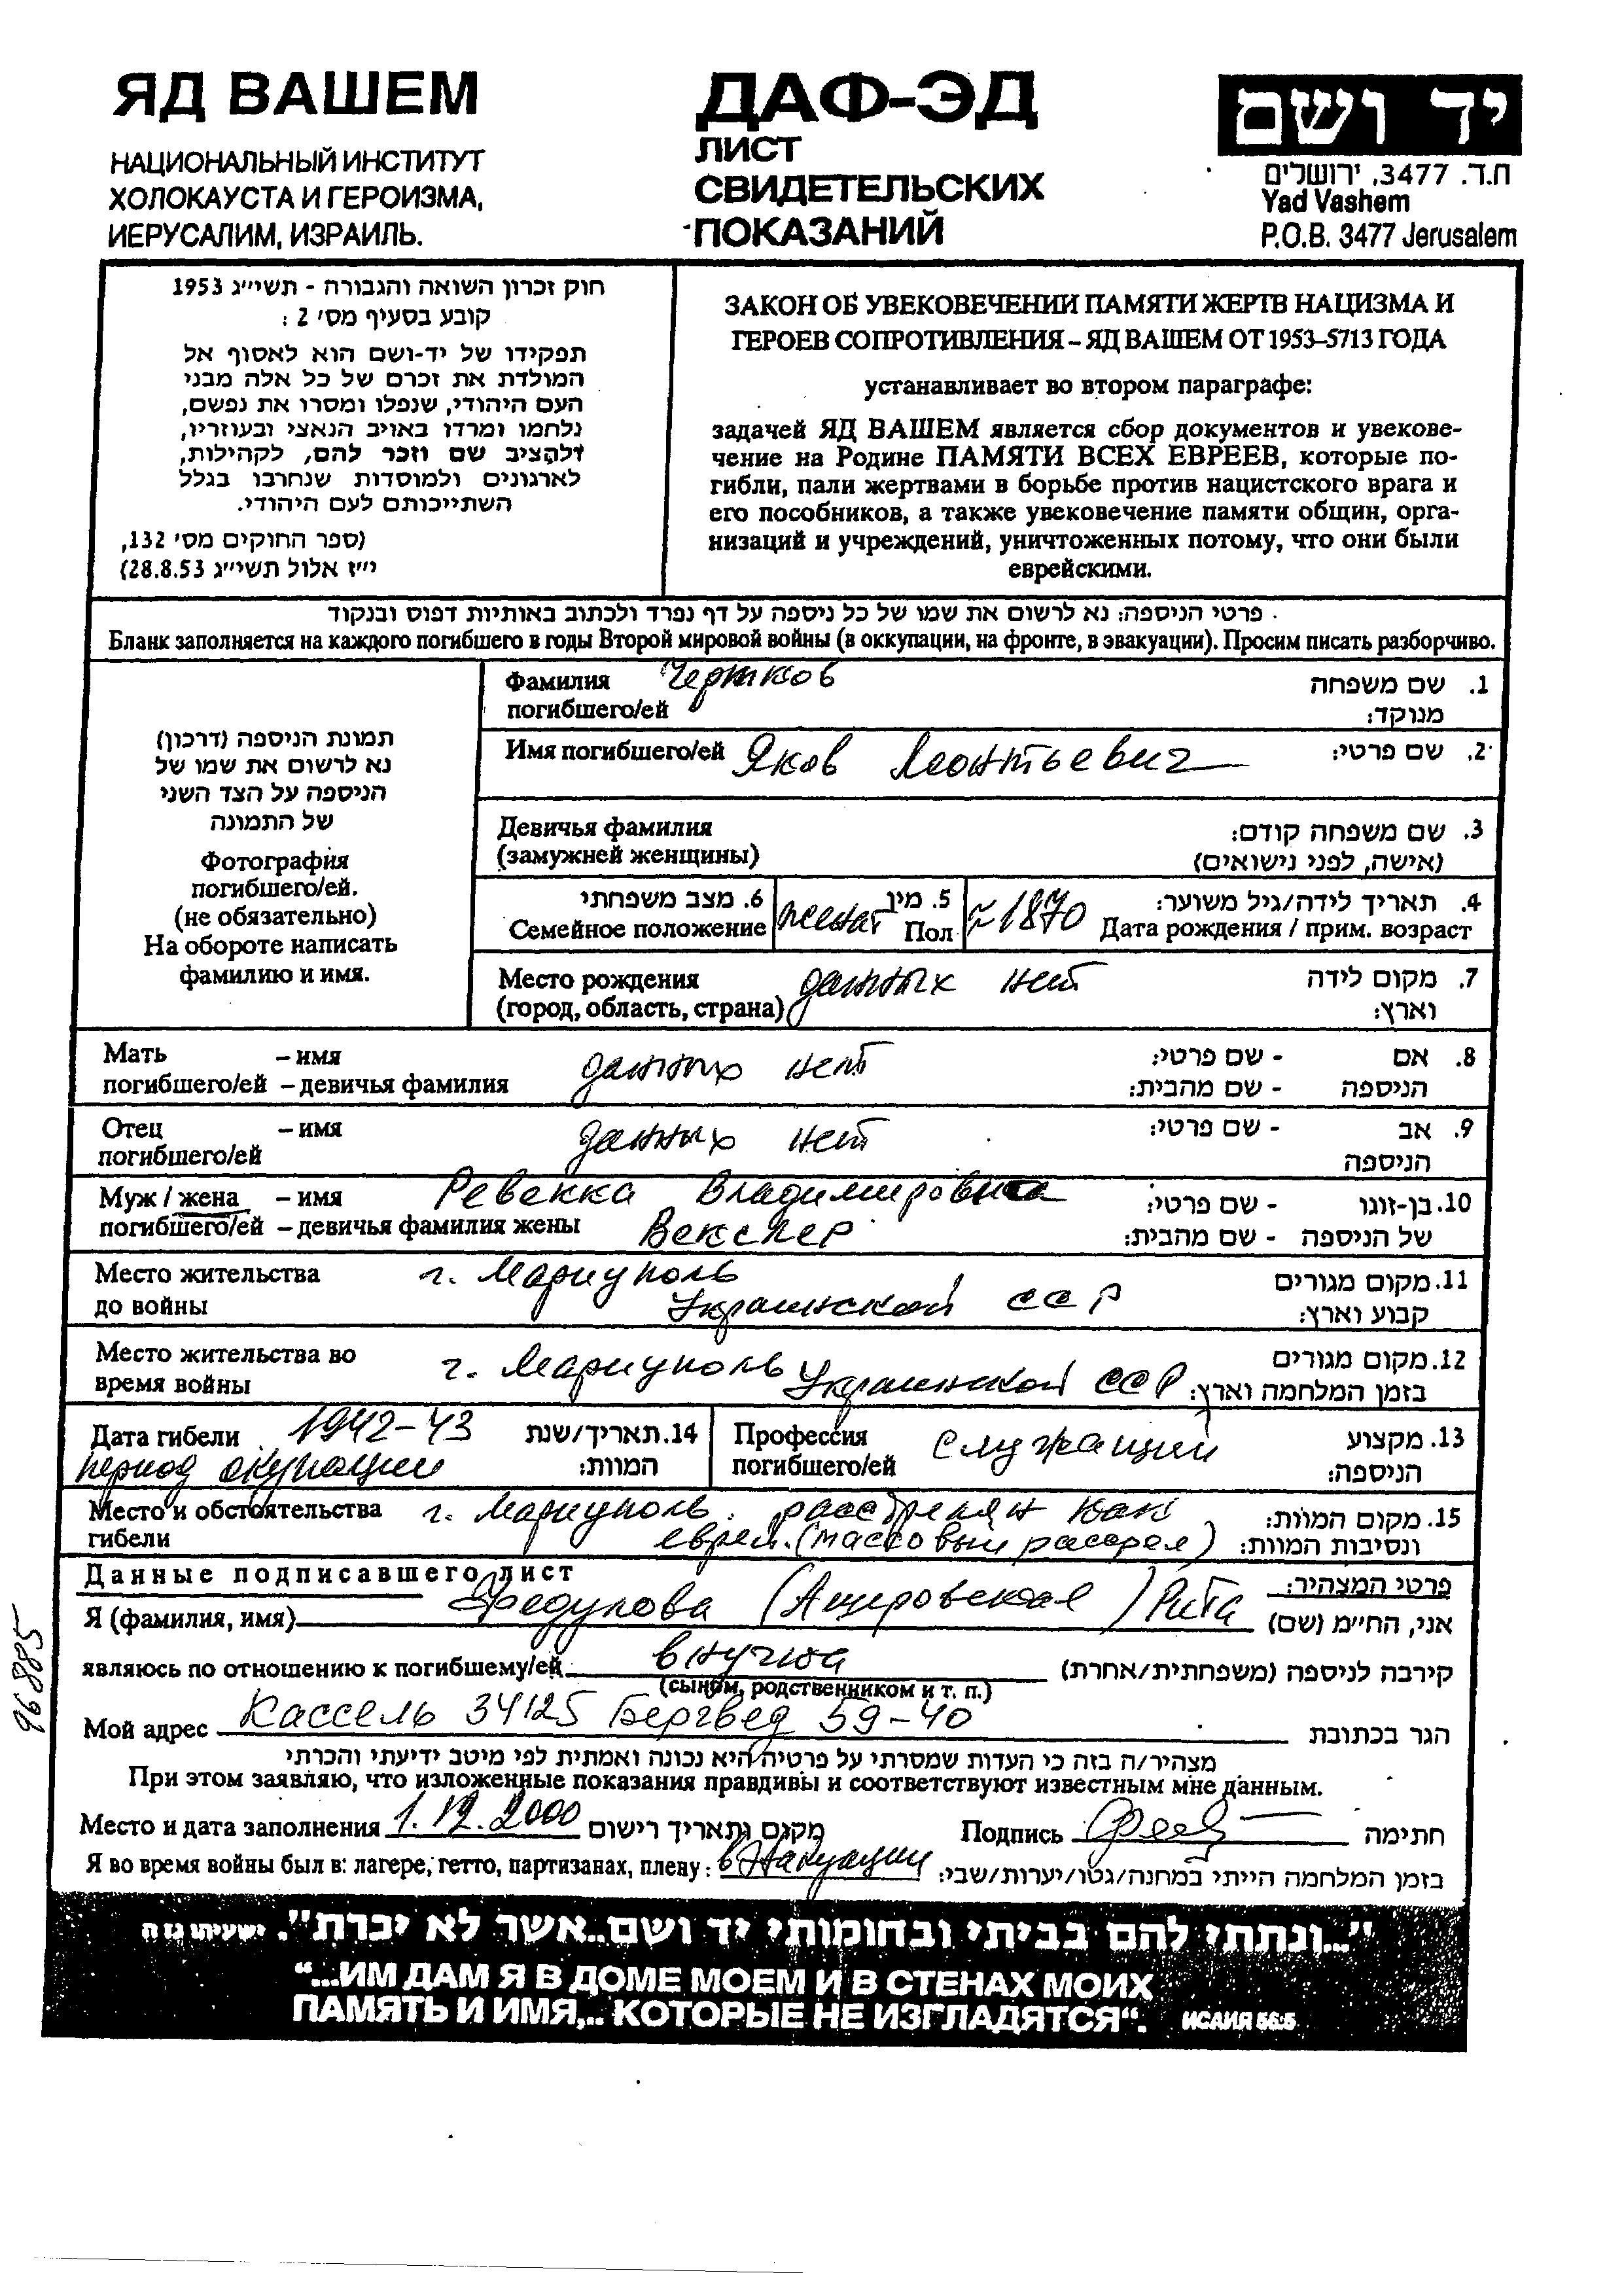 ЯД ВАШЕМ
НАЦИОНАЛЬНЫЙ ИНСТИТУТ
ХОЛОКАУСТА И ГЕРОИЗМА,
ИЕРУСАЛИМ, ИЗРАИЛЬ.
ДАФ-ЭД
ЛИСТ
СВИДЕТЕЛЬСКИХ
ПОКАЗАНИЙ
יד ושם
ת.ד. 3477, ירושלים
Yad Vashem
P.O.B. 3477 Jerusalem
חוק זכרון השואה והגבורה - תשי״ג 1953
קובע בסעיף מס׳ 2 :
תפקידו של יד-ושם הוא לאסוף אל
המולדת את זכרם של כל אלה מבני
העם היהודי, שנפלו ומסרו את נפשם,
נלחמו ומרדו באויב הנאצי ובעוזריו,
ולהציב שם וזכר להם, לקהילות,
לארגונים ולמוסדות שנחרבו בגלל
השתייכותם לעם היהודי.
(ספר החוקים מס׳ 132,
י״ז אלול תשי״ג 28.8.53)
ЗАКОН ОБ УВЕКОВЕЧЕНИИ ПАМЯТИ ЖЕРТВ НАЦИЗМА И
ГЕРОЕВ СОПРОТИВЛЕНИЯ – ЯД ВАШЕМ ОТ 1953–5713 ГОДА
устанавливает во втором параграфе:
задачей ЯД ВАШЕМ является сбор документов и увекове-
чение на Родине ПАМЯТИ ВСЕХ ЕВРЕЕВ, которые по-
гибли, пали жертвами в борьбе против нацистского врага и
его пособников, а также увековечение памяти общин, орга-
низаций и учреждений, уничтоженных потому, что они были
еврейскими.
פרטי הניספה: נא לרשום את שמו של כל ניספה על דף נפרד ולכתוב באותיות דפוס ובנקוד
Бланк заполняется на каждого погибшего в годы Второй мировой войны (в оккупации, на фронте, в эвакуации). Просим писать разборчиво.
תמונת הניספה (דרכון)
נא לרשום את שמו של
הניספה על הצד השני
של התמונה
Фотография
погибшего/ей.
(не обязательно)
На обороте написать
фамилию и имя.
Фамилия Чертков 1. שם משפחה
погибшего/ей מנוקד:
Имя погибшего/ей Яков Леонтьевич 2. שם פרטי:
Девичья фамилия 3. שם משפחה קודם:
(замужней женщины) (אישה, לפני נישואים)
6. מצב משפחתי 5. מין 4. תאריך לידה/גיל משוער:
Семейное положение женат Пол ≈1870 Дата рождения / прим. возраст
Место рождения данных нет 7. מקום לידה
(город, область, страна) וארץ:
Мать – имя данных нет 8. אם - שם פרטי:
погибшего/ей – девичья фамилия הניספה - שם מהבית:
Отец – имя данных нет 9. אב - שם פרטי:
погибшего/ей הניספה
Муж / жена – имя Ревекка Владимировна 10. בן-זוגו - שם פרטי:
погибшего/ей – девичья фамилия жены Векслер של הניספה - שם מהבית:
Место жительства г. Мариуполь 11. מקום מגורים
до войны Украинской ССР קבוע וארץ:
Место жительства во г. Мариуполь 12. מקום מגורים
время войны Украинской ССР בזמן המלחמה וארץ:
Дата гибели 1942-43 14. תאריך/שנת
период окупации המוות:
Профессия служащий 13. מקצוע
погибшего/ей הניספה:
Место и обстоятельства г. Мариуполь. расстрелян как 15. מקום המוות:
гибели еврей. (массовый расстрел) ונסיבות המוות:
Данные подписавшего лист פרטי המצהיר:
Я (фамилия, имя) Федулова (Ащеровская) Рита אני, החי״מ (שם)
являюсь по отношению к погибшему/ей внучка קירבה לניספה (משפחתית/אחרת)
(сыном, родственником и т. п.)
Мой адрес Кассель 34125 Бергвед 59-40 הגר בכתובת
מצהיר/ה בזה כי העדות שמסרתי על פרטיה היא נכונה ואמתית לפי מיטב ידיעתי והכרתי
При этом заявляю, что изложенные показания правдивы и соответствуют известным мне данным.
Место и дата заполнения 1.12.2000 מקום ותאריך רישום Подпись חתימה
Я во время войны был в: лагере, гетто, партизанах, плену: в Эвакуации בזמן המלחמה הייתי במחנה/גטו/יערות/שבי:
"...ונתתי להם בביתי ובחומותי יד ושם..אשר לא יכרת". ישעיהו נו ה
“...ИМ ДАМ Я В ДОМЕ МОЕМ И В СТЕНАХ МОИХ
ПАМЯТЬ И ИМЯ,.. КОТОРЫЕ НЕ ИЗГЛАДЯТСЯ“. ИСАИЯ 56:5
96885